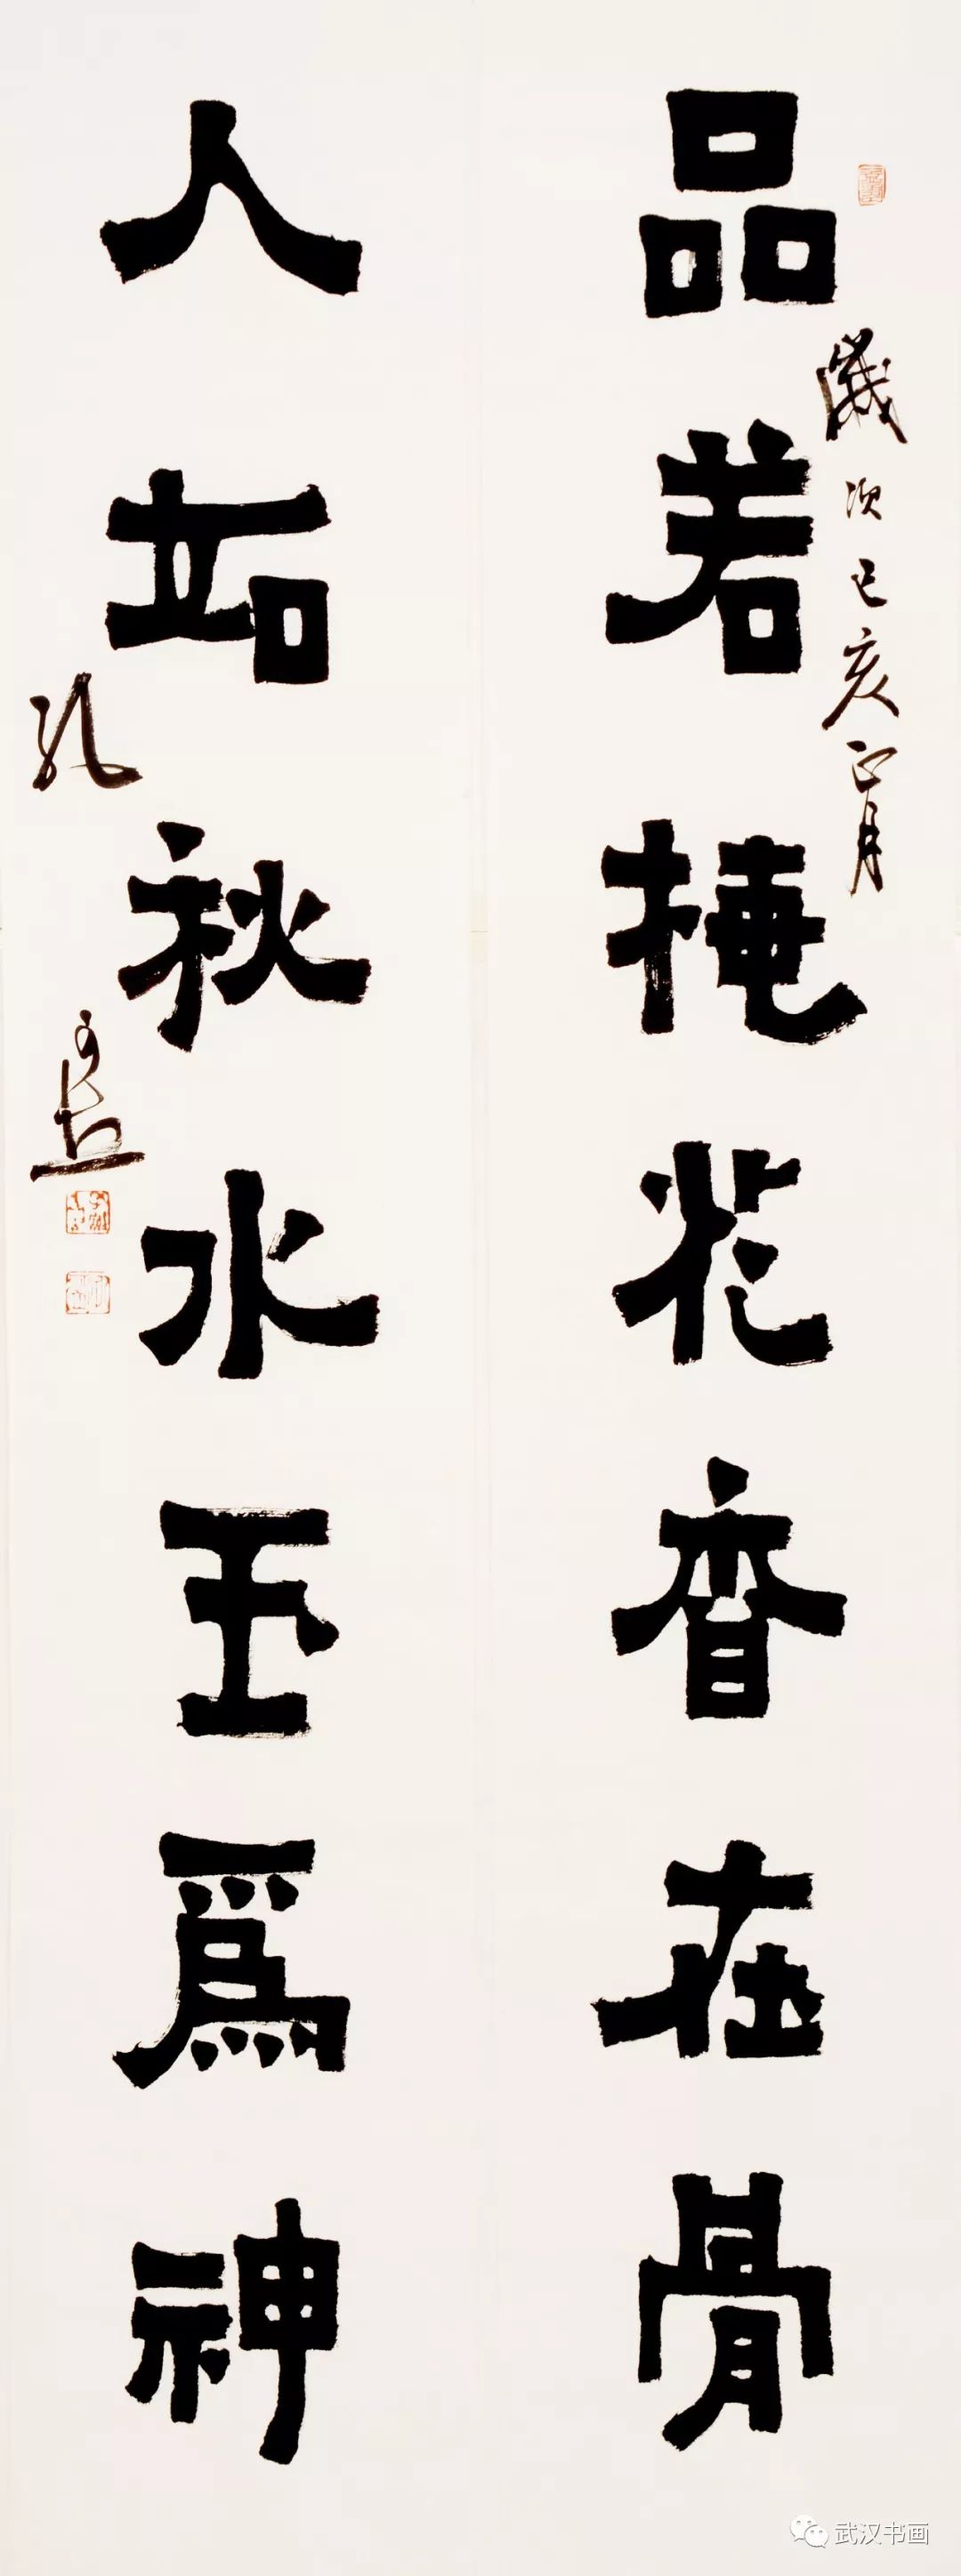 品若梅花香在骨
歲次己亥正月
人如秋水玉爲神
孔可立
武汉书画